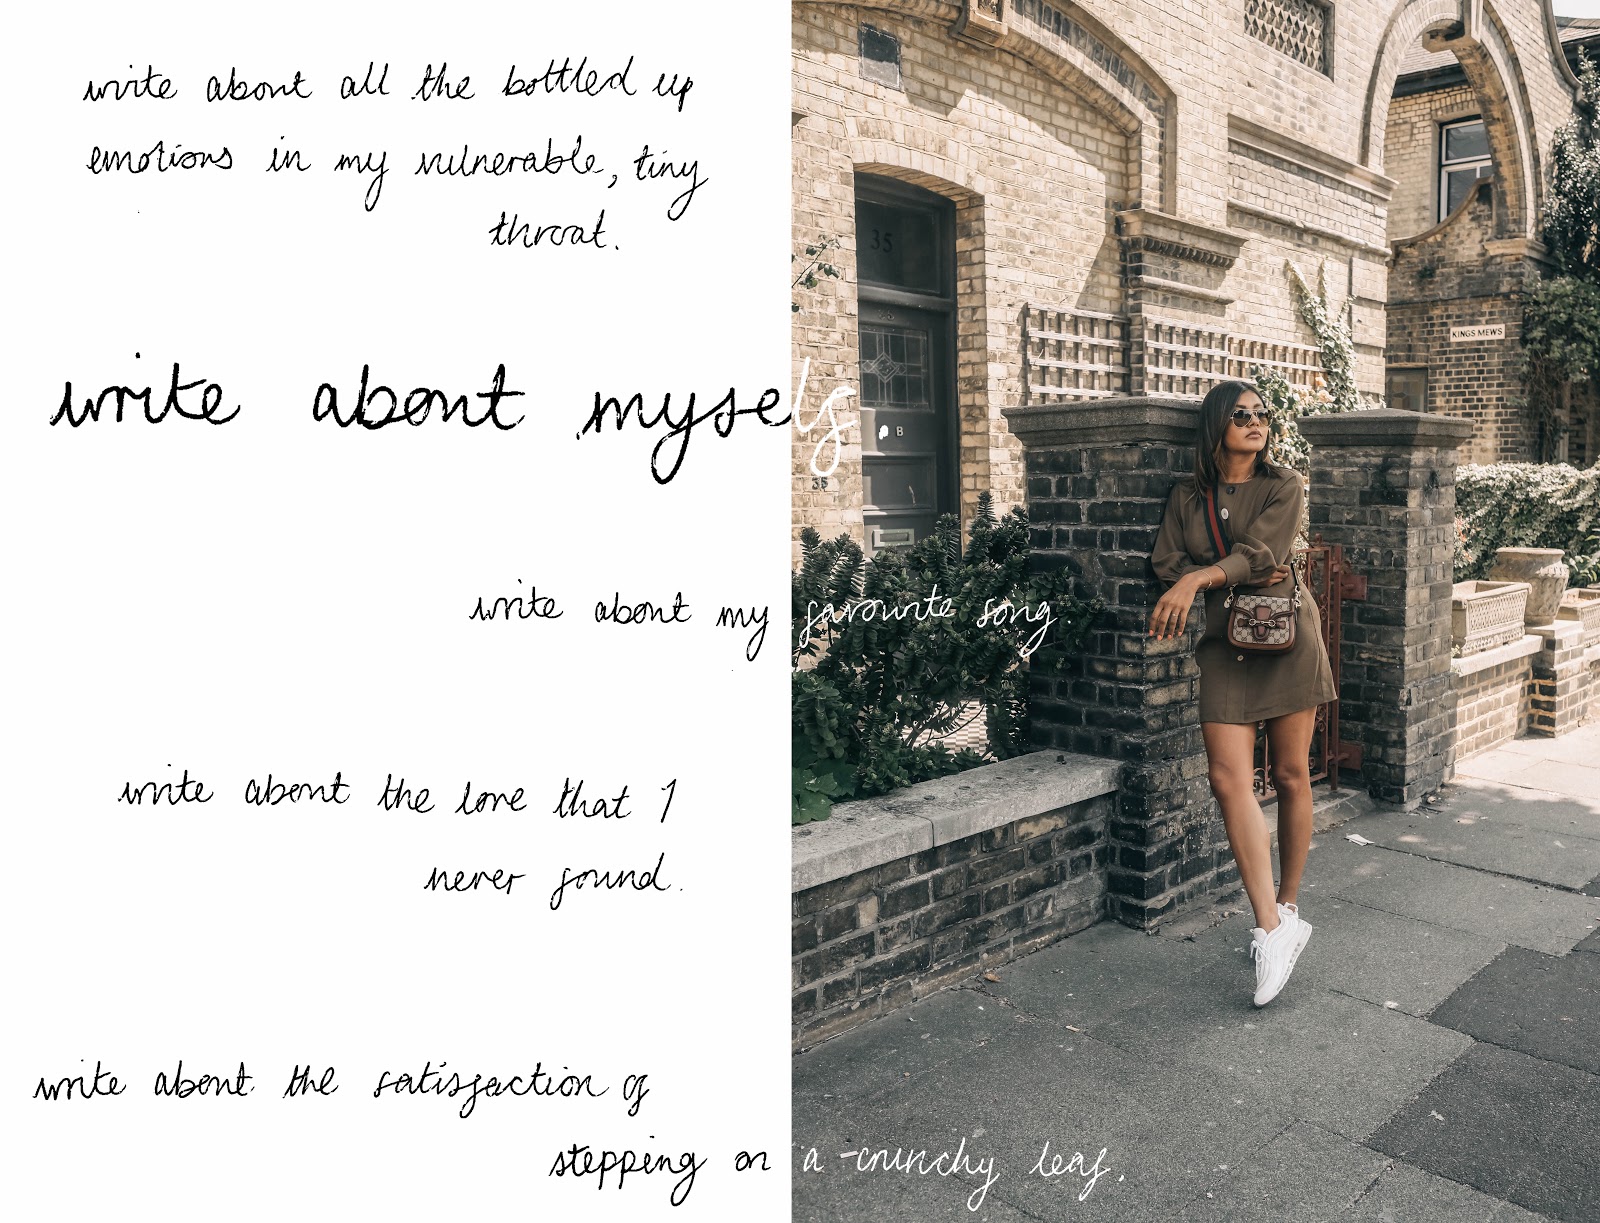 write about all the bottled up
emotions in my vulnerable, tiny
throat.
write about myself
write about my favourite song.
write about the love that I
never found.
write about the satisfaction of
stepping on a crunchy leaf.
35
B
35
KINGS MEWS